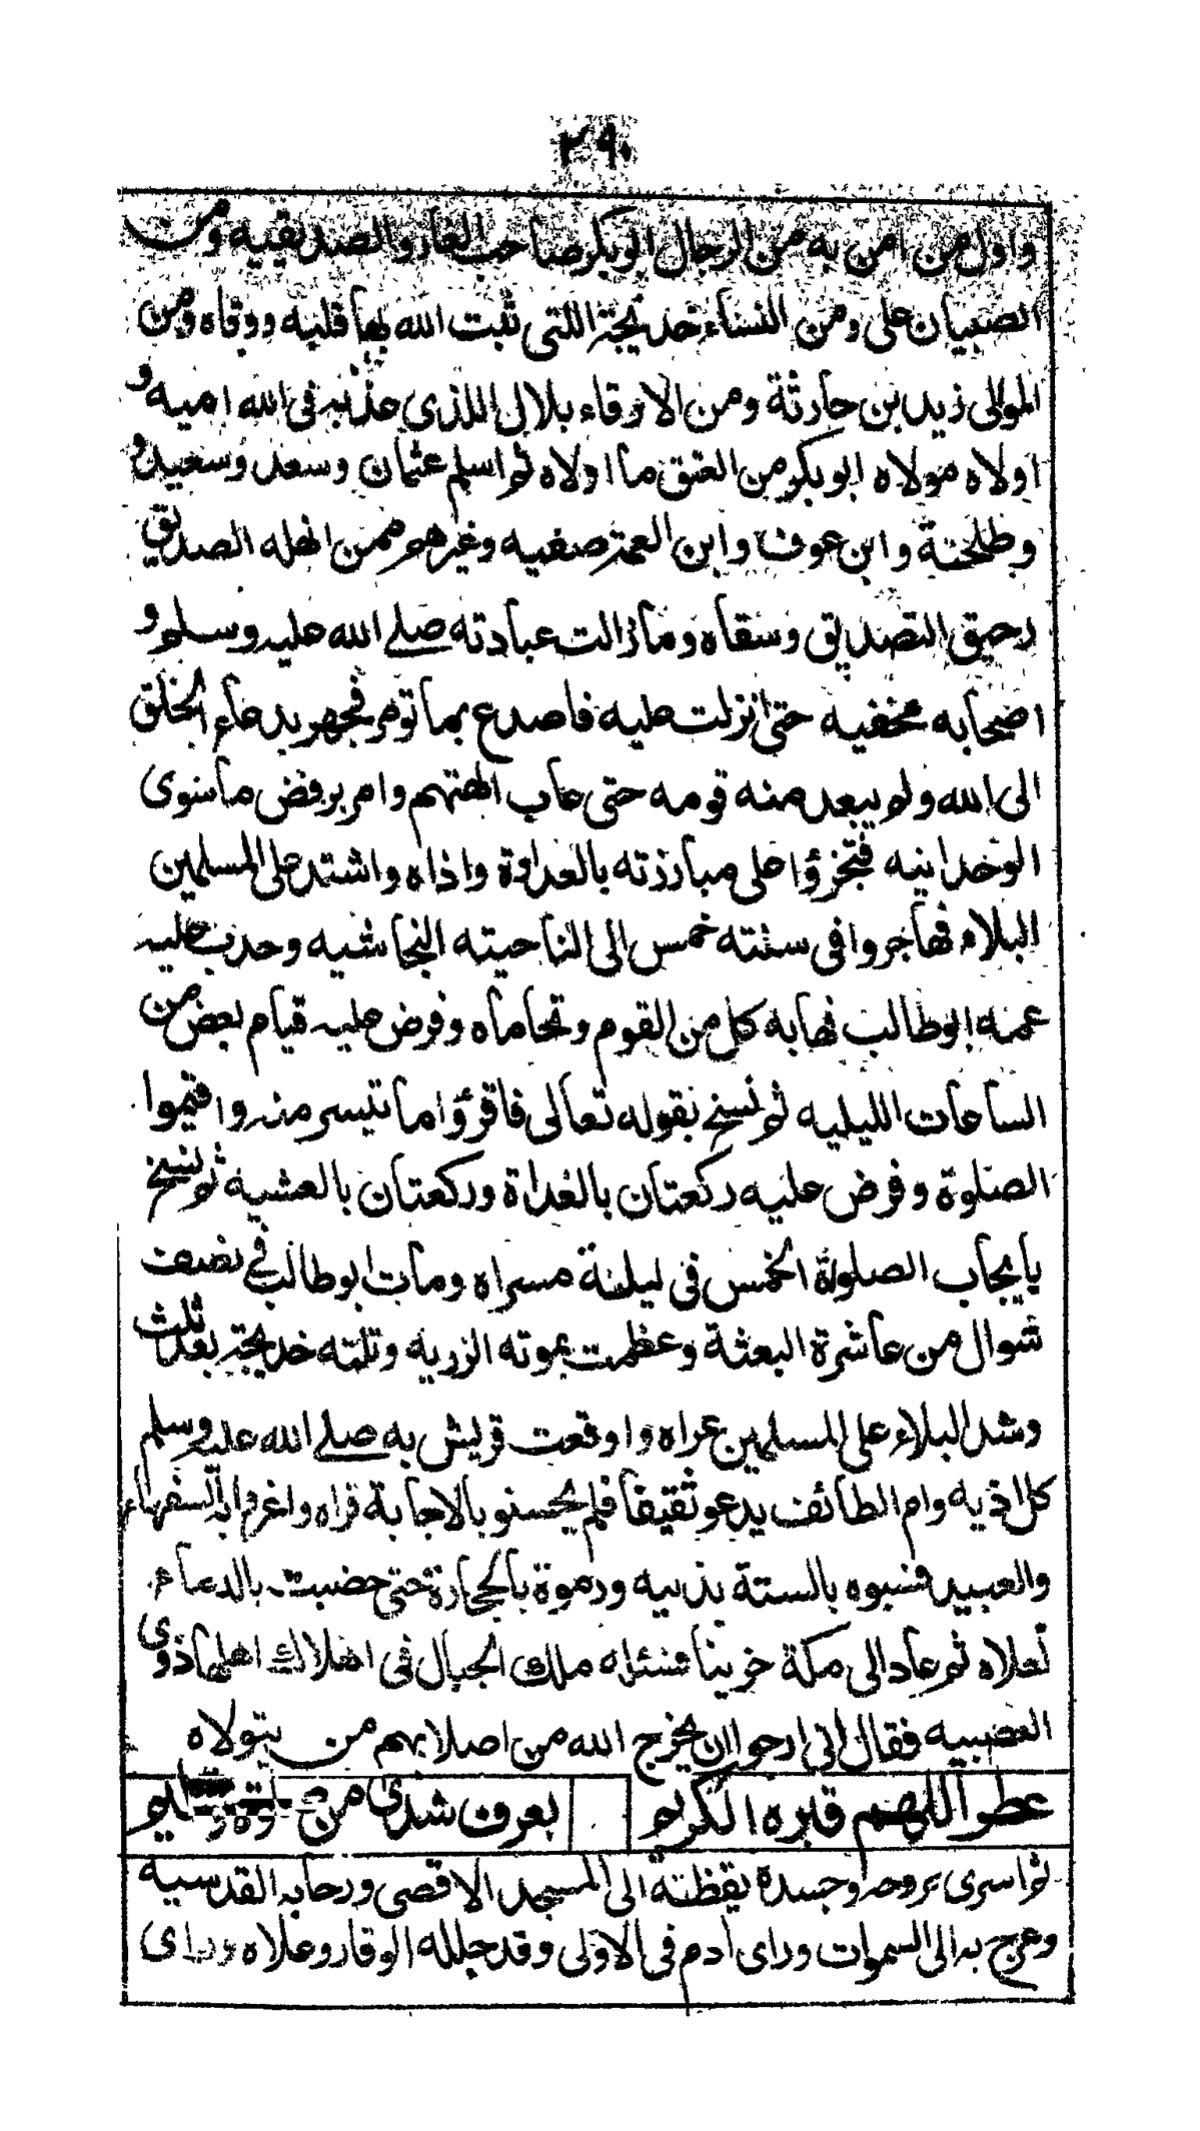 ٢٩٠
واول من امن به من الرجال ابوبكر صاحب الغار والصديقيه ومن
الصبيان على ومن النساء خديجة اللتى ثبت الله بها قلبه ووقاه ومن
الموالى زيد بن حارثة ومن الارقاء بلال اللذى عذبه فى الله اميه و
اولاه مولاه ابو بكر من العتق ما اولاه ثم اسلم عثمان وسعد وسعيد و
وطلحة وابن عوف وابن العمة صفيه وغيرهم ممن انهله الصديق
رحيق التصديق وسقاه وما زالت عبادته صلے الله عليه وسلم و
اصحابه مخفيه حتى انزلت عليه فاصدع بما تومر فجهر بدعاء الخلق
الى الله ولم يبعد منه قومه حتى عاب الهتهم وامر برفض ما سوى
الوحدانيه فتجرؤا على مبارزته بالعداوة واذاه واشتد على المسلمين
البلاء فهاجروا فى سنته خمس الى الناحيته النجاشيه وحدب عليه
عمه ابوطالب فهابه كل من القوم وتحاماه وفرض عليه قيام بعض من
الساعات الليليه ثم نسخ بقوله تعالى فاقرؤا ما تيسر منه واقيموا
الصلوة وفرض عليه ركعتان بالغداة وركعتان بالعشيه ثم نسخ
بايجاب الصلوة الخمس فى ليلة مسراه ومات ابوطالب فے نصف
شوال من عاشرة البعثة وعظمت بموته الزريه وتلته خديجة بعد ثلث
وشد البلاء على المسلمين عراه واوقعت قريش به صلے الله عليه وسلم
كل اذيه وام الطائف يدعو ثقيفا فلم يحسنو بالاجابة قراه واغروا به السفهاء
والعبيد فسبوه بالستة بذيه ورموة بالحجارة حتى خضبت بالدماء
نعلاه ثم عاد الى مكة حزينا فسئله ملك الجبال فى اهلاك اهلها ذوى
العصبيه فقال انى ارجوا ان يخرج الله من اصلابهم من يتولاه
عطر اللهم قبره الكريم بعرف شذى من
ثم اسرى بروحه وجسده يقظته الى المسجد الاقصى ورحابه القدسيه
وعرج به الى السموات وراى ادم فى الاولى وقد جلله الوقار وعلاه وراى